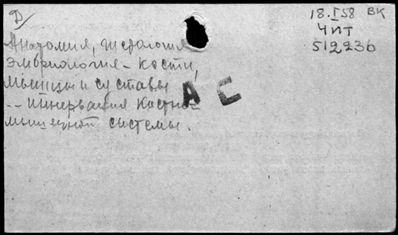 Д/
18.I 58 ВК
ЧИТ
512236
Анатомия, гистология
эмбриология - кости,
мышцы и суставы
-- иннервация костно-
мышечной системы.
А С